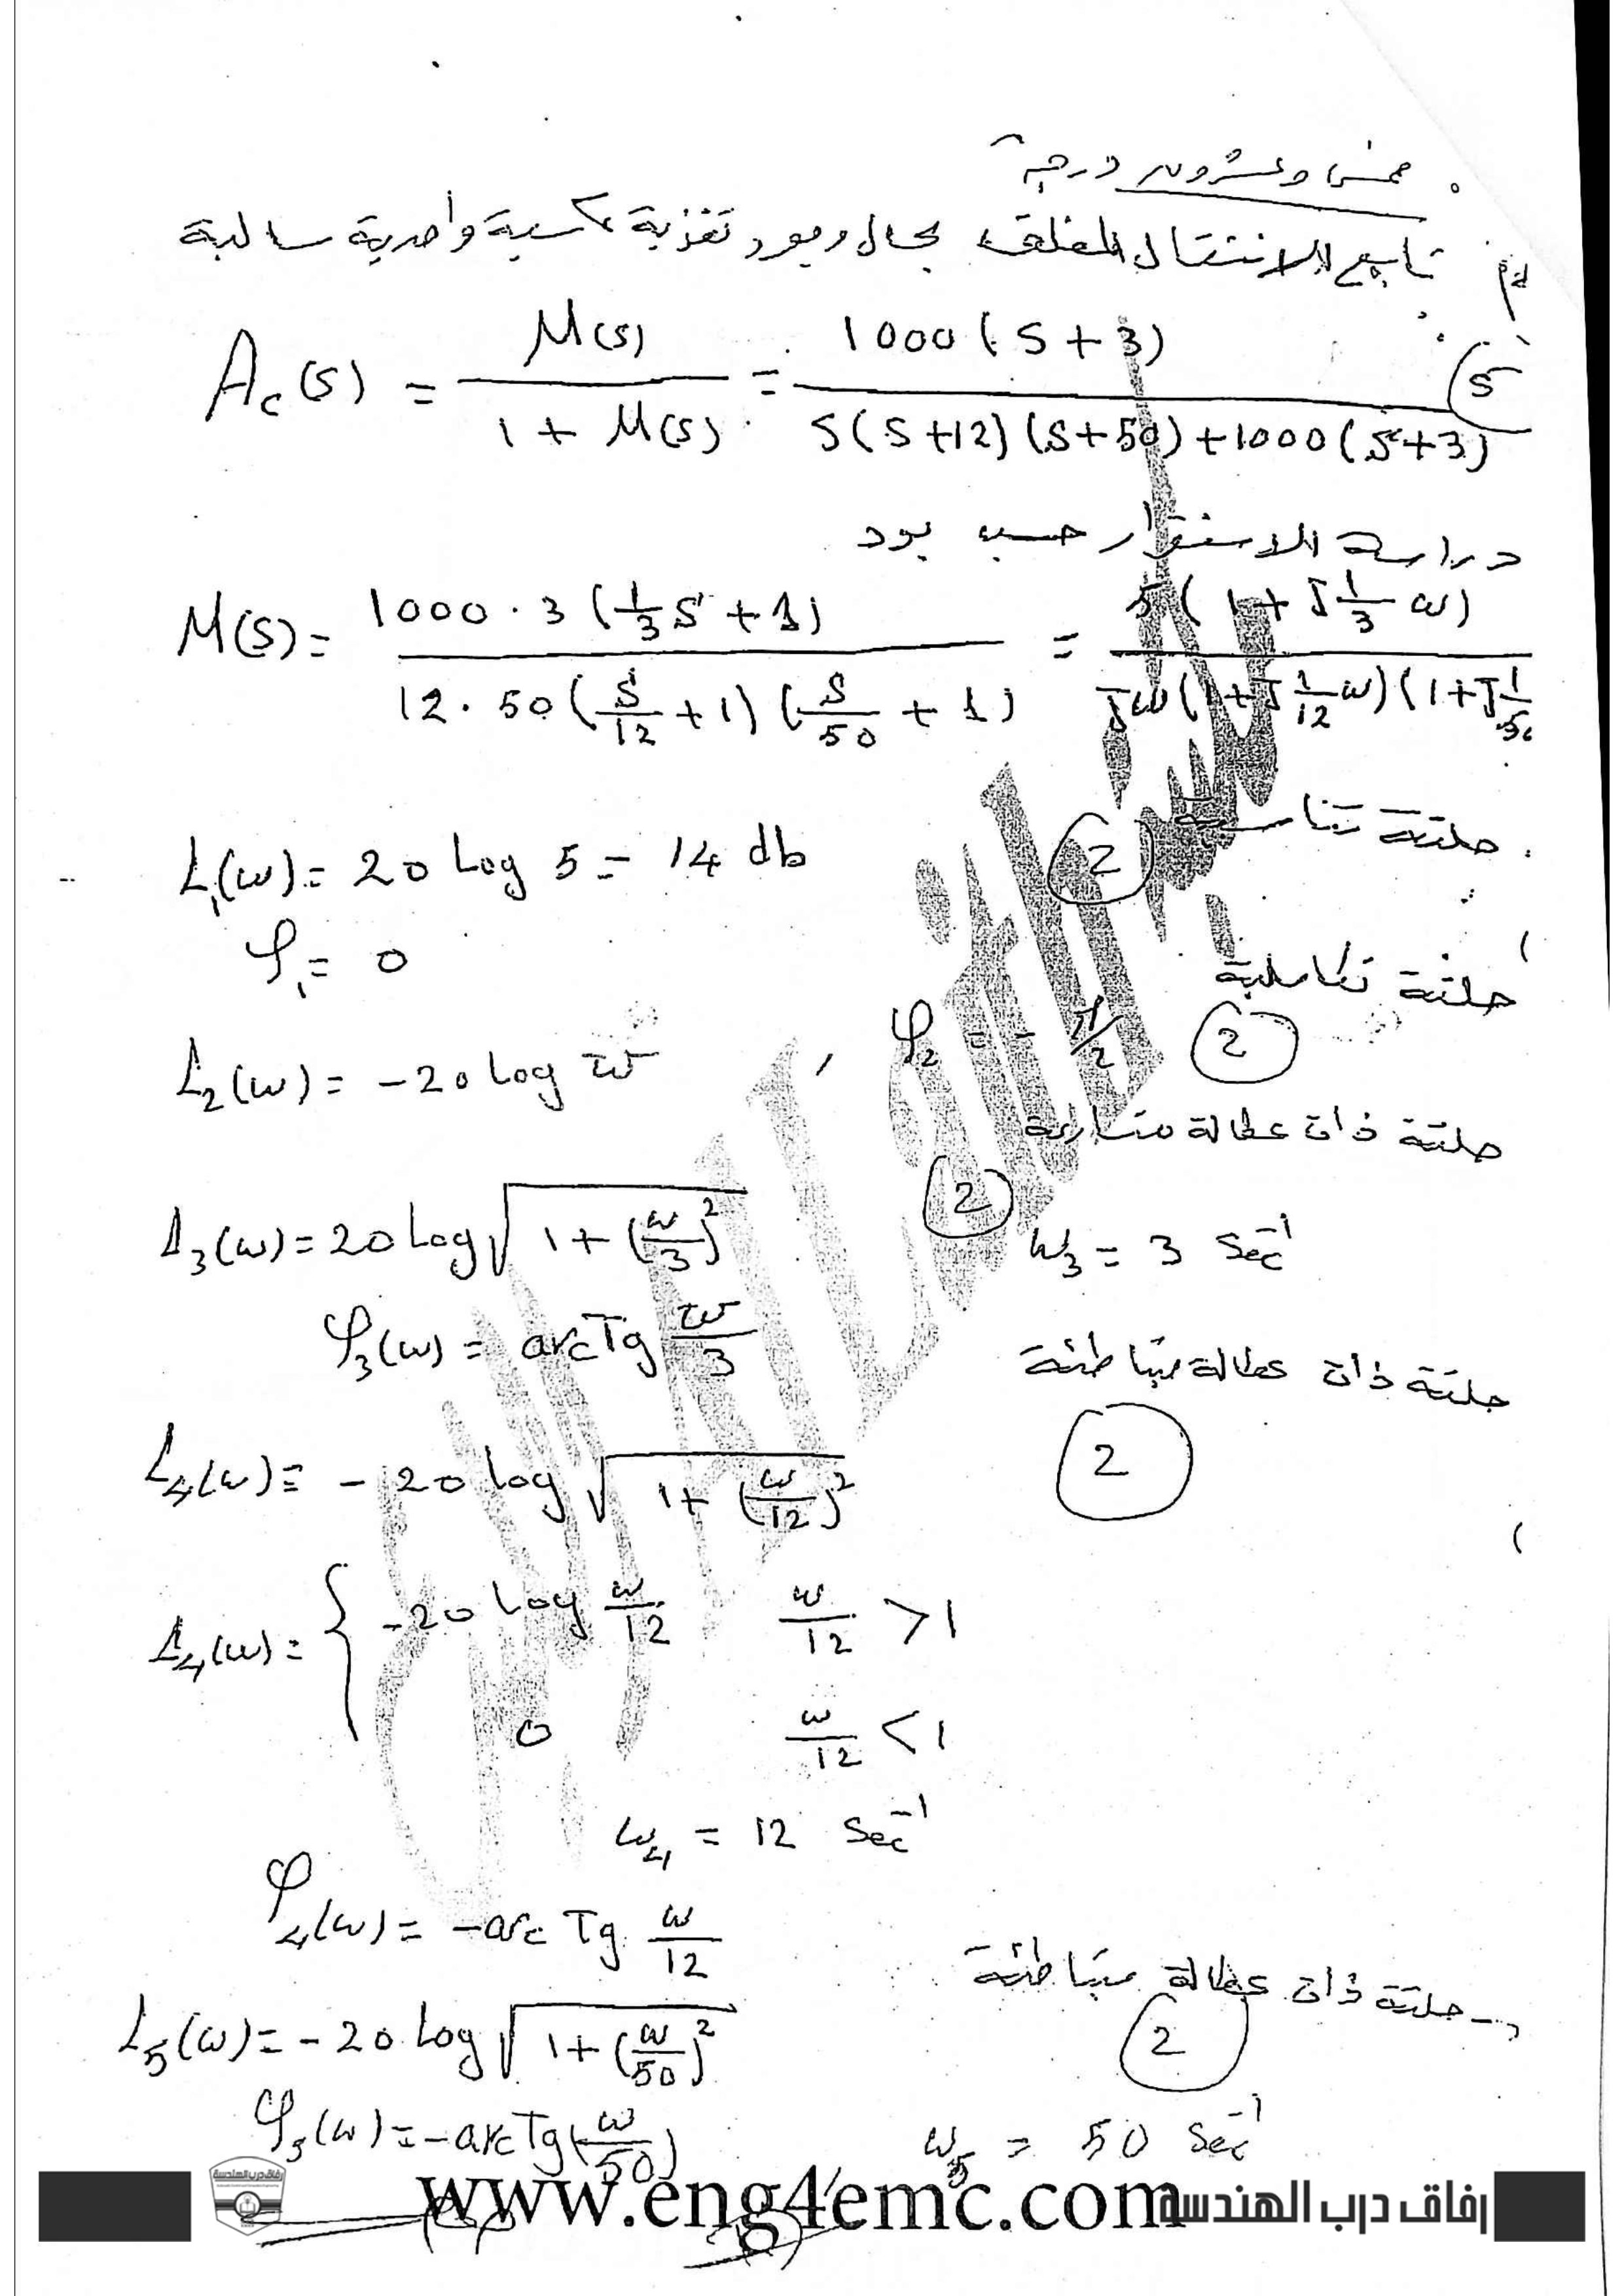 خمس وعشرون درجة
تابع الانتقال المغلق بحال وجود تغذية عكسية واحدية سالبة
A_c(s) = M(s) / (1 + M(s)) = 1000(s+3) / (s(s+12)(s+50)+1000(s+3)) (5)
دراسة الاستقرار حسب بود
M(s) = 1000 · 3 (1/3 s + 1) / (12 · 50 (s/12 + 1)(s/50 + 1)) = 5(1 + J 1/3 ω) / (Jω(1 + J 1/12 ω)(1 + J 1/50
حلقة تناسبية (2)
L₁(ω) = 20 Log 5 = 14 db
φ₁ = 0
حلقة تكاملية
L₂(ω) = -20 log ω , φ₂ = - π/2 (2)
حلقة ذات عطالة متسارعة (2)
L₃(ω) = 20 Log √(1 + (ω/3)²) ω₃ = 3 Sec⁻¹
φ₃(ω) = arcTg ω/3
حلقة ذات عطالة متباطئة
L₄(ω) = -20 log √(1 + (ω/12)²) (2)
L₄(ω) = { -20 Log ω/12 ω/12 > 1
0 ω/12 < 1
ω₄ = 12 Sec⁻¹
φ₄(ω) = -arc Tg ω/12
حلقة ذات عطالة متباطئة (2)
L₅(ω) = -20 log √(1 + (ω/50)²)
φ₅(ω) = -arcTg(ω/50) ω₅ = 50 Sec⁻¹
www.eng4emc.com
رفاق درب الهندسة